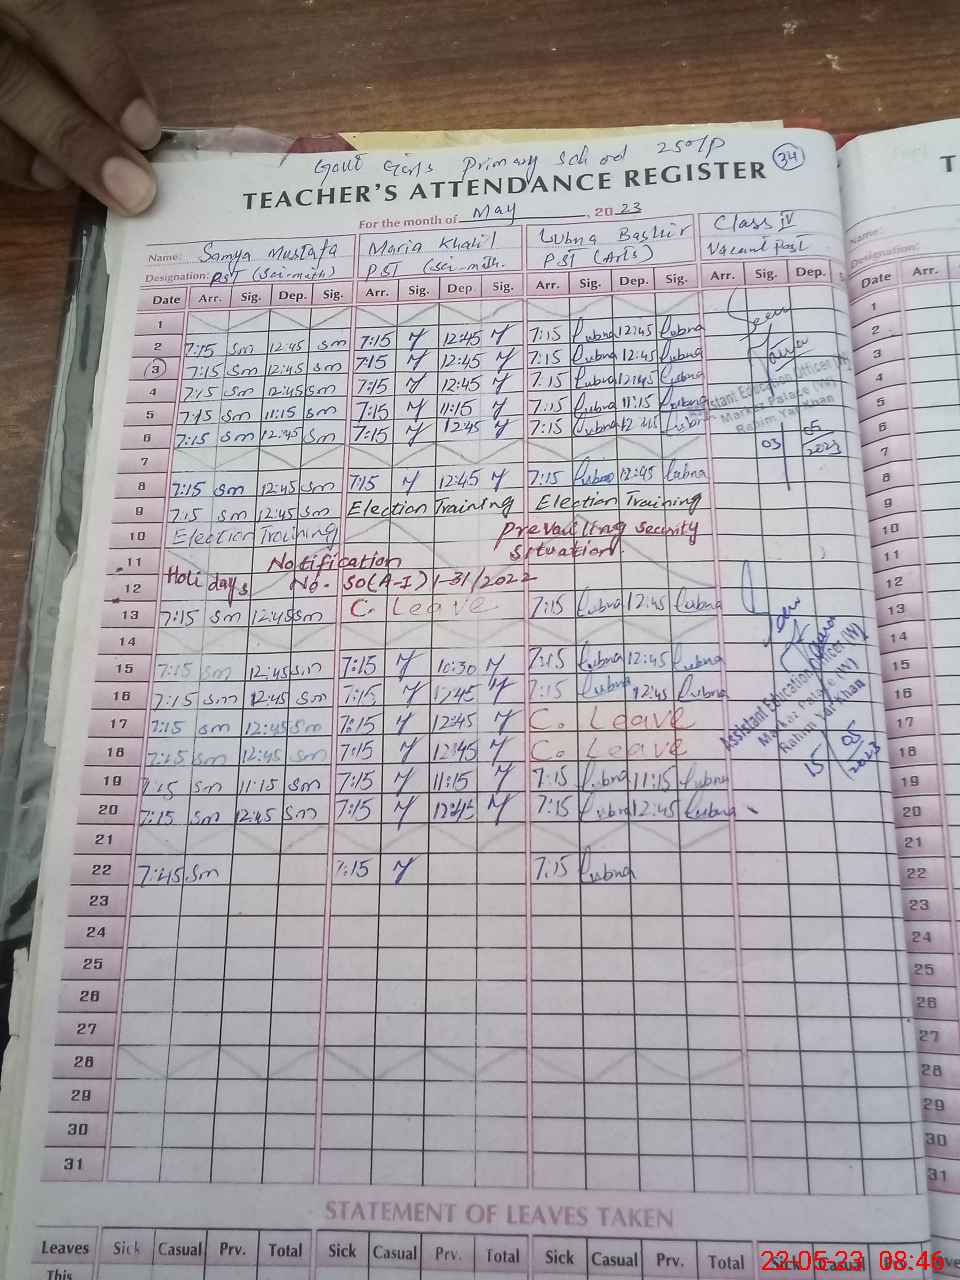 Govt Girls Primary School 250/P
34
TEACHER'S ATTENDANCE REGISTER
For the month of May, 2023
Name: Samya Mustafa Maria Khalil Lubna Bashir Class IV
Designation: PST (Sci-math) PST (Sci-math. PST (Arts) Vacant Post
Date Arr. Sig. Dep. Sig. Arr. Sig. Dep. Sig. Arr. Sig. Dep. Sig. Arr. Sig. Dep.
1
2 7:15 sm 12:45 sm 7:15 M 12:45 M 7:15 Lubna 12:45 Lubna
3 7:15 sm 12:45 sm 7:15 M 12:45 M 7:15 Lubna 12:45 Lubna
4 7:15 sm 12:45 sm 7:15 M 12:45 M 7:15 Lubna 12:45 Lubna
5 7:15 sm 11:15 sm 7:15 M 11:15 M 7:15 Lubna 11:15 Lubna
6 7:15 sm 12:45 sm 7:15 M 12:45 M 7:15 Lubna 12:45 Lubna
Assistant Education Officer (W)
Markaz Palace (W)
Rahim Yar Khan
03 05 2023
7
8 7:15 sm 12:45 sm 7:15 M 12:45 M 7:15 Lubna 12:45 Lubna
9 7:15 sm 12:45 sm Election Training Election Training
10 Election Training Prevailing security
11 Notification situation.
12 Holidays No. SO(A-I) 1-31/2022
13 7:15 sm 12:45 sm C. Leave 7:15 Lubna 12:45 Lubna
14
15 7:15 sm 12:45 sm 7:15 M 10:30 M 7:15 Lubna 12:45 Lubna
16 7:15 sm 12:45 sm 7:15 M 12:45 M 7:15 Lubna 12:45 Lubna
17 7:15 sm 12:45 sm 7:15 M 12:45 M C. Leave
18 7:15 sm 12:45 sm 7:15 M 12:45 M C. Leave
Assistant Education Officer (W)
Markaz Palace (W)
Rahim Yar Khan
15 05 2023
19 7:15 sm 11:15 sm 7:15 M 11:15 M 7:15 Lubna 11:15 Lubna
20 7:15 sm 12:45 sm 7:15 M 12:45 M 7:15 Lubna 12:45 Lubna
21
22 7:45 sm 7:15 M 7:15 Lubna
23
24
25
26
27
28
29
30
31
STATEMENT OF LEAVES TAKEN
Leaves Sick Casual Prv. Total Sick Casual Prv. Total Sick Casual Prv. Total Sick Casual Prv.
This
22-05-23 08:46
Name:
Designation:
Date Arr.
1
2
3
4
5
6
7
8
9
10
11
12
13
14
15
16
17
18
19
20
21
22
23
24
25
26
27
28
29
30
31